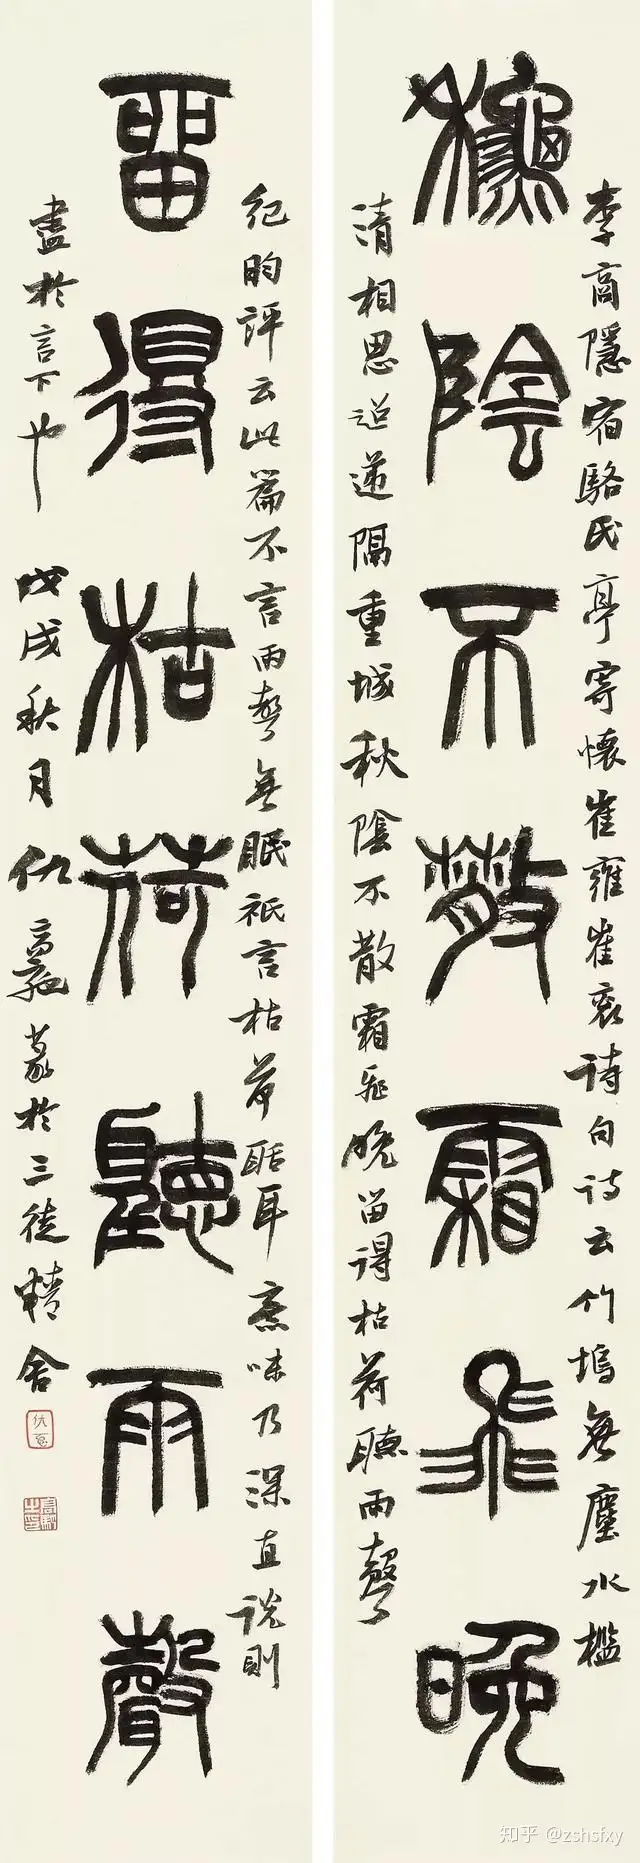 李商隱宿駱氏亭寄懷崔雍崔袞詩句詩云竹塢無塵水檻
龝陰不散霜飛晚
清相思迢遞隔重城秋陰不散霜飛晚留得枯荷聽雨聲
紀昀評云此篇不言雨聲無眠祇言枯荷聒耳意味乃深直說則
留得枯荷聽雨聲
盡於言下也 戊戌秋月仇高馳篆於三徙精舍
知乎 @zshsfxy